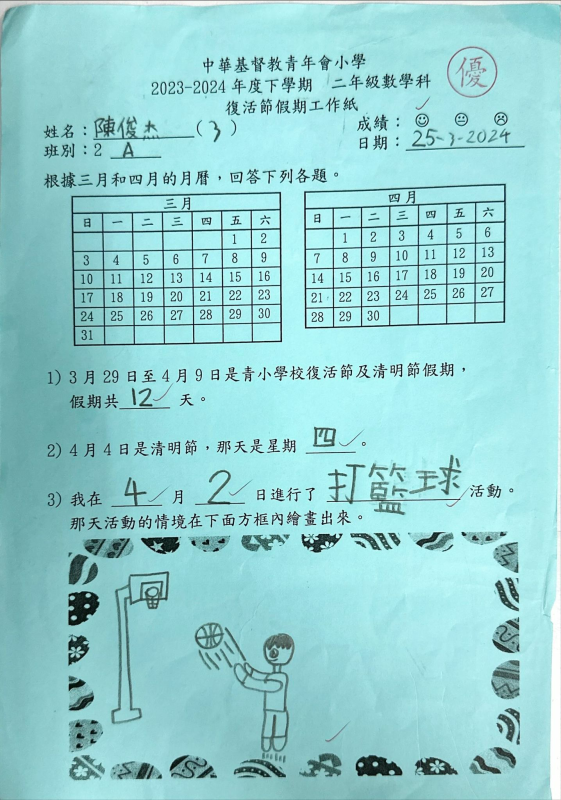 中華基督教青年會小學
2023-2024 年度下學期 二年級數學科
優
復活節假期工作紙
姓名：陳俊杰（3）
成績：
班別：2 A
日期：25-3-2024
根據三月和四月的月曆，回答下列各題。
三月
日 一 二 三 四 五 六
1 2
3 4 5 6 7 8 9
10 11 12 13 14 15 16
17 18 19 20 21 22 23
24 25 26 27 28 29 30
31
四月
日 一 二 三 四 五 六
1 2 3 4 5 6
7 8 9 10 11 12 13
14 15 16 17 18 19 20
21 22 23 24 25 26 27
28 29 30
1) 3 月 29 日至 4 月 9 日是青小學校復活節及清明節假期，
假期共 12 天。
2) 4 月 4 日是清明節，那天是星期 四 。
3) 我在 4 月 2 日進行了 打籃球 活動。
那天活動的情境在下面方框內繪畫出來。